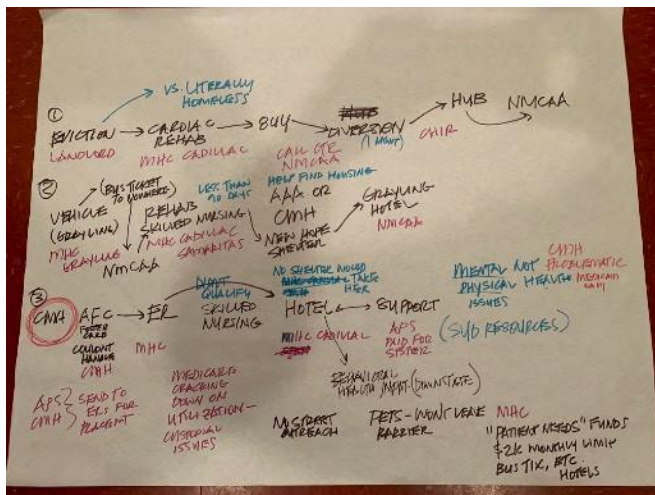 VS. LITERALLY
HOMELESS
①
EVICTION → CARDIAC REHAB → 844 → DIVERSION (1 MGMT) → HUB → NMCAA
LANDLORD
MHC CADILLAC
CALL CTR
NMCAA
CHIR
②
VEHICLE
(GRAYLING)
MHC
GRAYLING
(BUS TICKET
NMCAA
REHAB
SKILLED NURSING
MHC CADILLAC
SAMARITAS
LESS THAN
90 DAYS
HELP FIND HOUSING
AAA OR
CMH
NEW HOPE
SHELTER
GRAYLING
HOTEL
NMCAA
③
CMH
AFC → ER
FOSTER
CARE
COULDN'T
MANAGE
CMH
MHC
QUALIFY
SKILLED
NURSING
NO SHELTER WOULD
TAKE
HER
HOTEL ← → SUPPORT
MHC CADILLAC
APS
PAID FOR
SISTER
MENTAL NOT
PHYSICAL HEALTH
ISSUES
CMH
PROBLEMATIC
MEDICAID
(SUD RESOURCES)
BEHAVIORAL
HEALTH INPAT. (DOWNSTATE)
APS
CMH
SEND TO
ERS FOR
PLACEMENT
CRACKING
DOWN ON
UTILIZATION—
CUSTODIAL
ISSUES
NO STREET
OUTREACH
PETS - WON'T LEAVE
BARRIER
MHC
"PATIENT NEEDS" FUNDS
$2K MONTHLY LIMIT
BUS TIX, ETC.
HOTELS